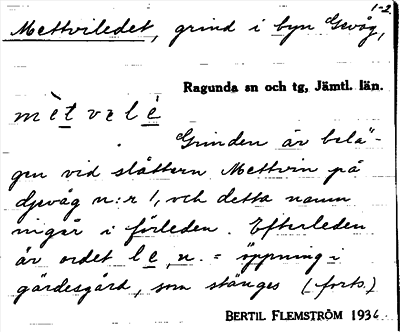 1-2.
Mettviledet, grind i byn Gevåg,
Ragunda sn och tg, Jämtl. län.
mètvelè
Grinden är belä-
gen vid slåttern Mettvin på
Gevåg n:r 1, och detta namn
ingår i förleden. Efterleden
är ordet le, n. = öppning i
gärdesgård, som stänges (forts.)
BERTIL FLEMSTRÖM 1936.